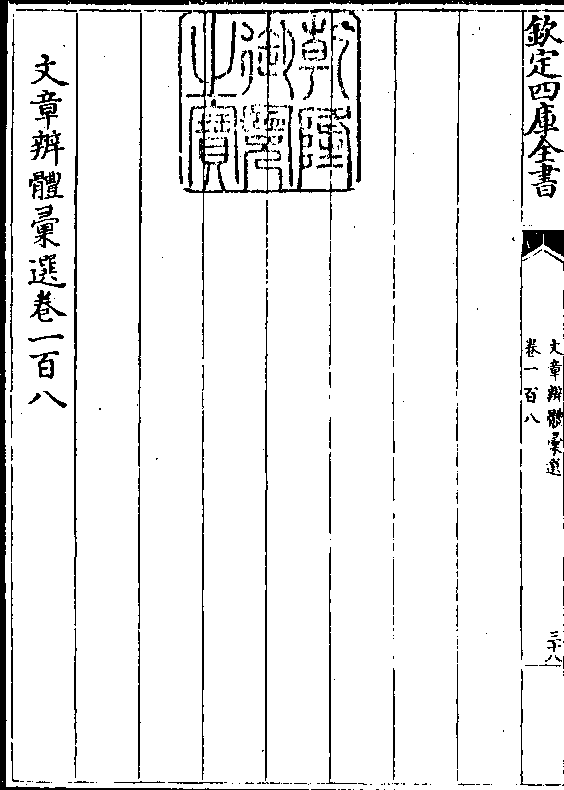 欽定四庫全書
文章辨體彙選
卷一百八
三十八
乾隆御覽之寶
文章辨體彙選卷一百八